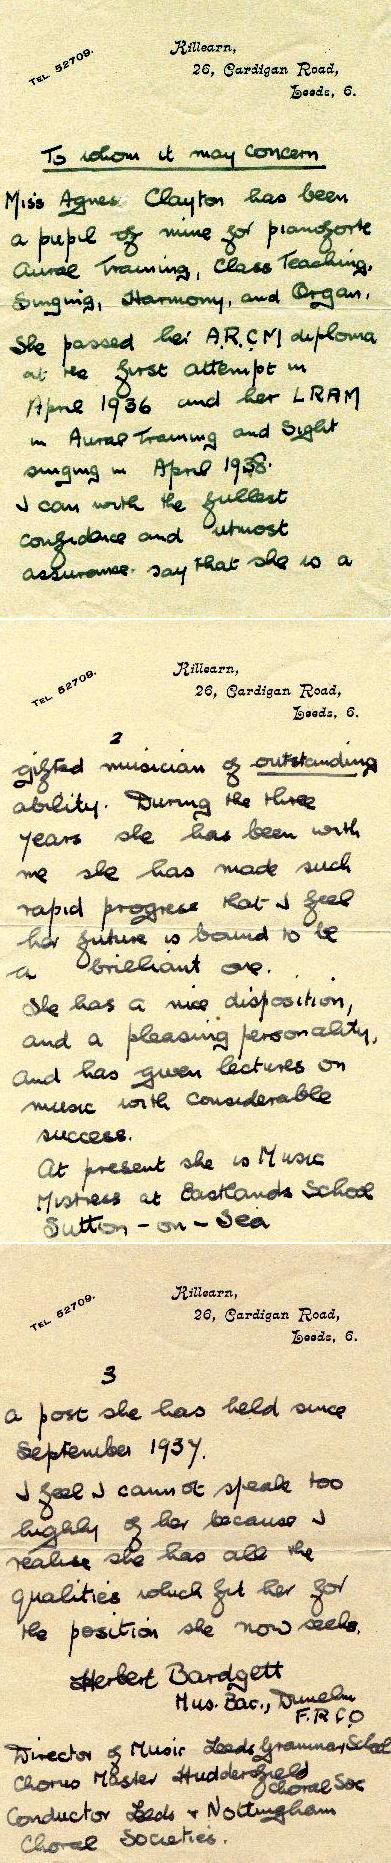 TEL 52709.
Killearn,
26, Cardigan Road,
Leeds, 6.
To whom it may concern
Miss Agnes Clayton has been
a pupil of mine for pianoforte
Aural Training, Class Teaching,
Singing, Harmony, and Organ.
She passed her A.R.C.M diploma
at the first attempt in
April 1936 and her LRAM
in Aural Training and Sight
singing in April 1938.
I can with the fullest
confidence and utmost
assurance say that she is a
TEL 52709.
Killearn,
26, Cardigan Road,
Leeds, 6.
2
gifted musician of outstanding
ability. During the three
years she has been with
me she has made such
rapid progress that I feel
her future is bound to be
a brilliant one.
She has a nice disposition,
and a pleasing personality,
and has given lectures on
music with considerable
success.
At present she is Music
Mistress at Eastlands School
Sutton-on-Sea
TEL 52709.
Killearn,
26, Cardigan Road,
Leeds, 6.
3
a post she has held since
September 1937.
I feel I cannot speak too
highly of her because I
realise she has all the
qualities which fit her for
the position she now seeks.
Herbert Bardgett
Mus. Bac., Dunelm
F.R.C.O
Director of Music Leeds Grammar School
Chorus Master Huddersfield
Choral Soc
Conductor Leeds & Nottingham
Choral Societies.